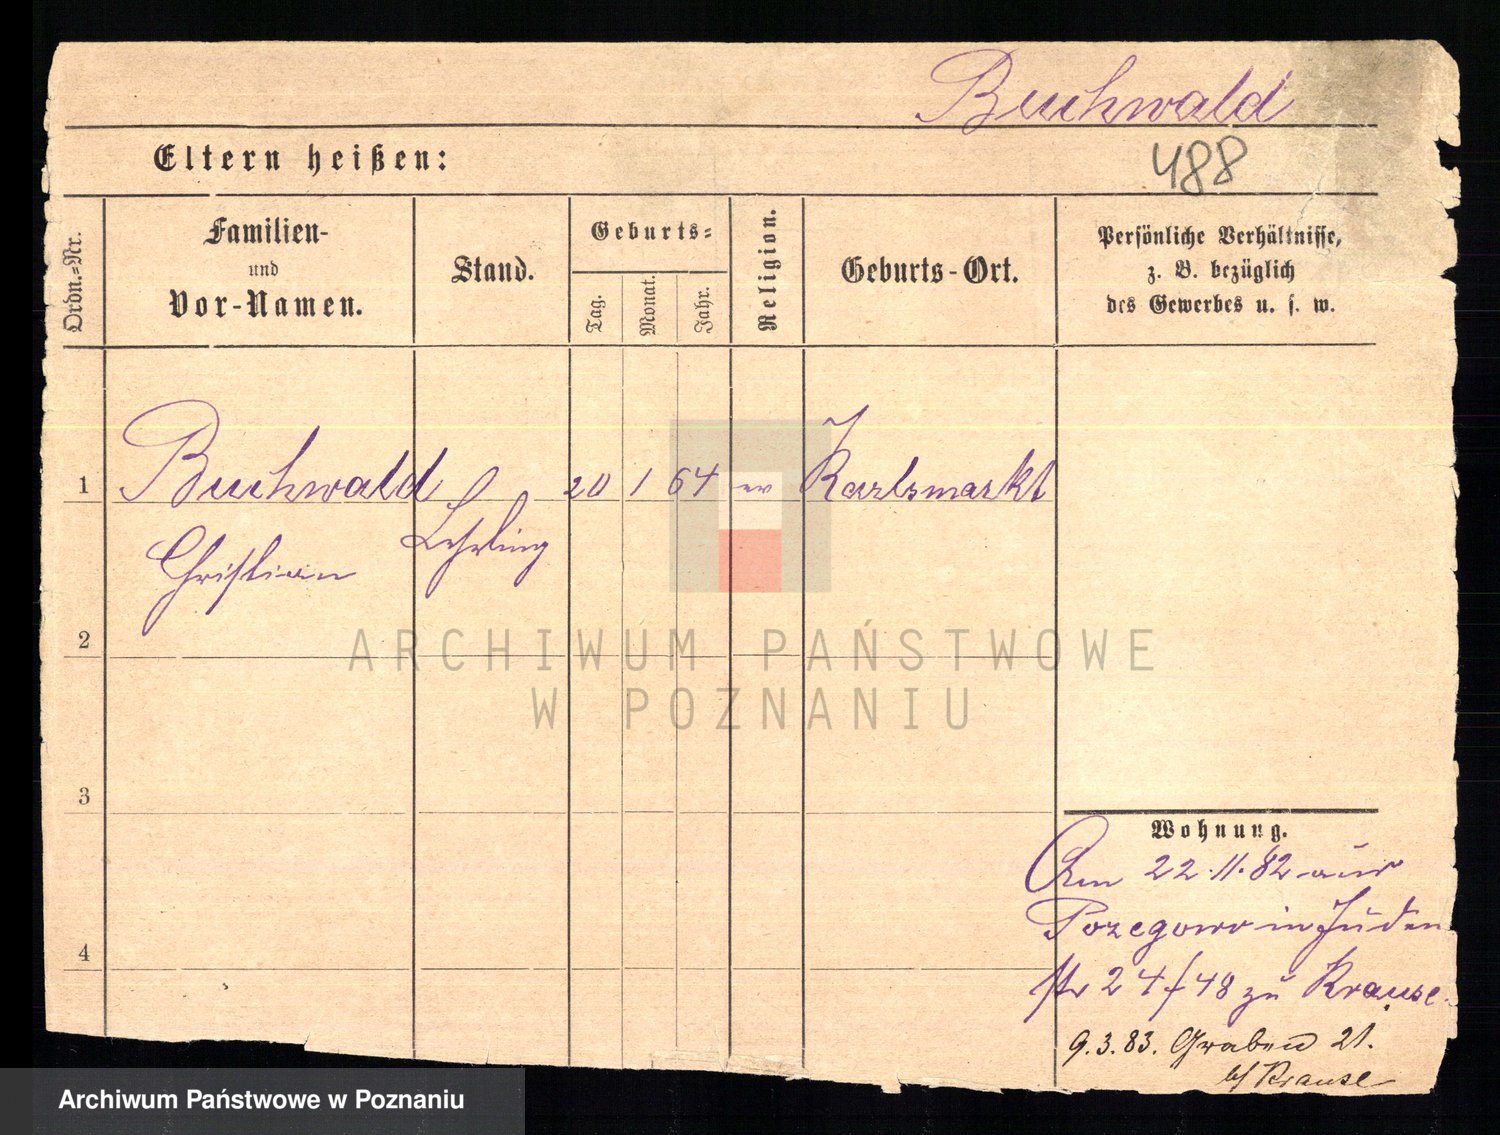 Buchwald
488
Eltern heißen:
Ordn.=Nr.
Familien-
und
Vor-Namen.
Stand.
Geburts=
Tag.
Monat.
Jahr.
Religion.
Geburts-Ort.
Persönliche Verhältnisse,
z. B. bezüglich
des Gewerbes u. s. w.
1
Buchwald
Christian
Lehrling
20 1 64 ev Karlsmarkt
2
3
4
Wohnung.
Am 22.11.82 aus
Pozegowo in Juden
str 24/48 zu Krause.
9.3.83. Graben 21.
b/ Krause
ARCHIWUM PAŃSTWOWE
W POZNANIU
Archiwum Państwowe w Poznaniu